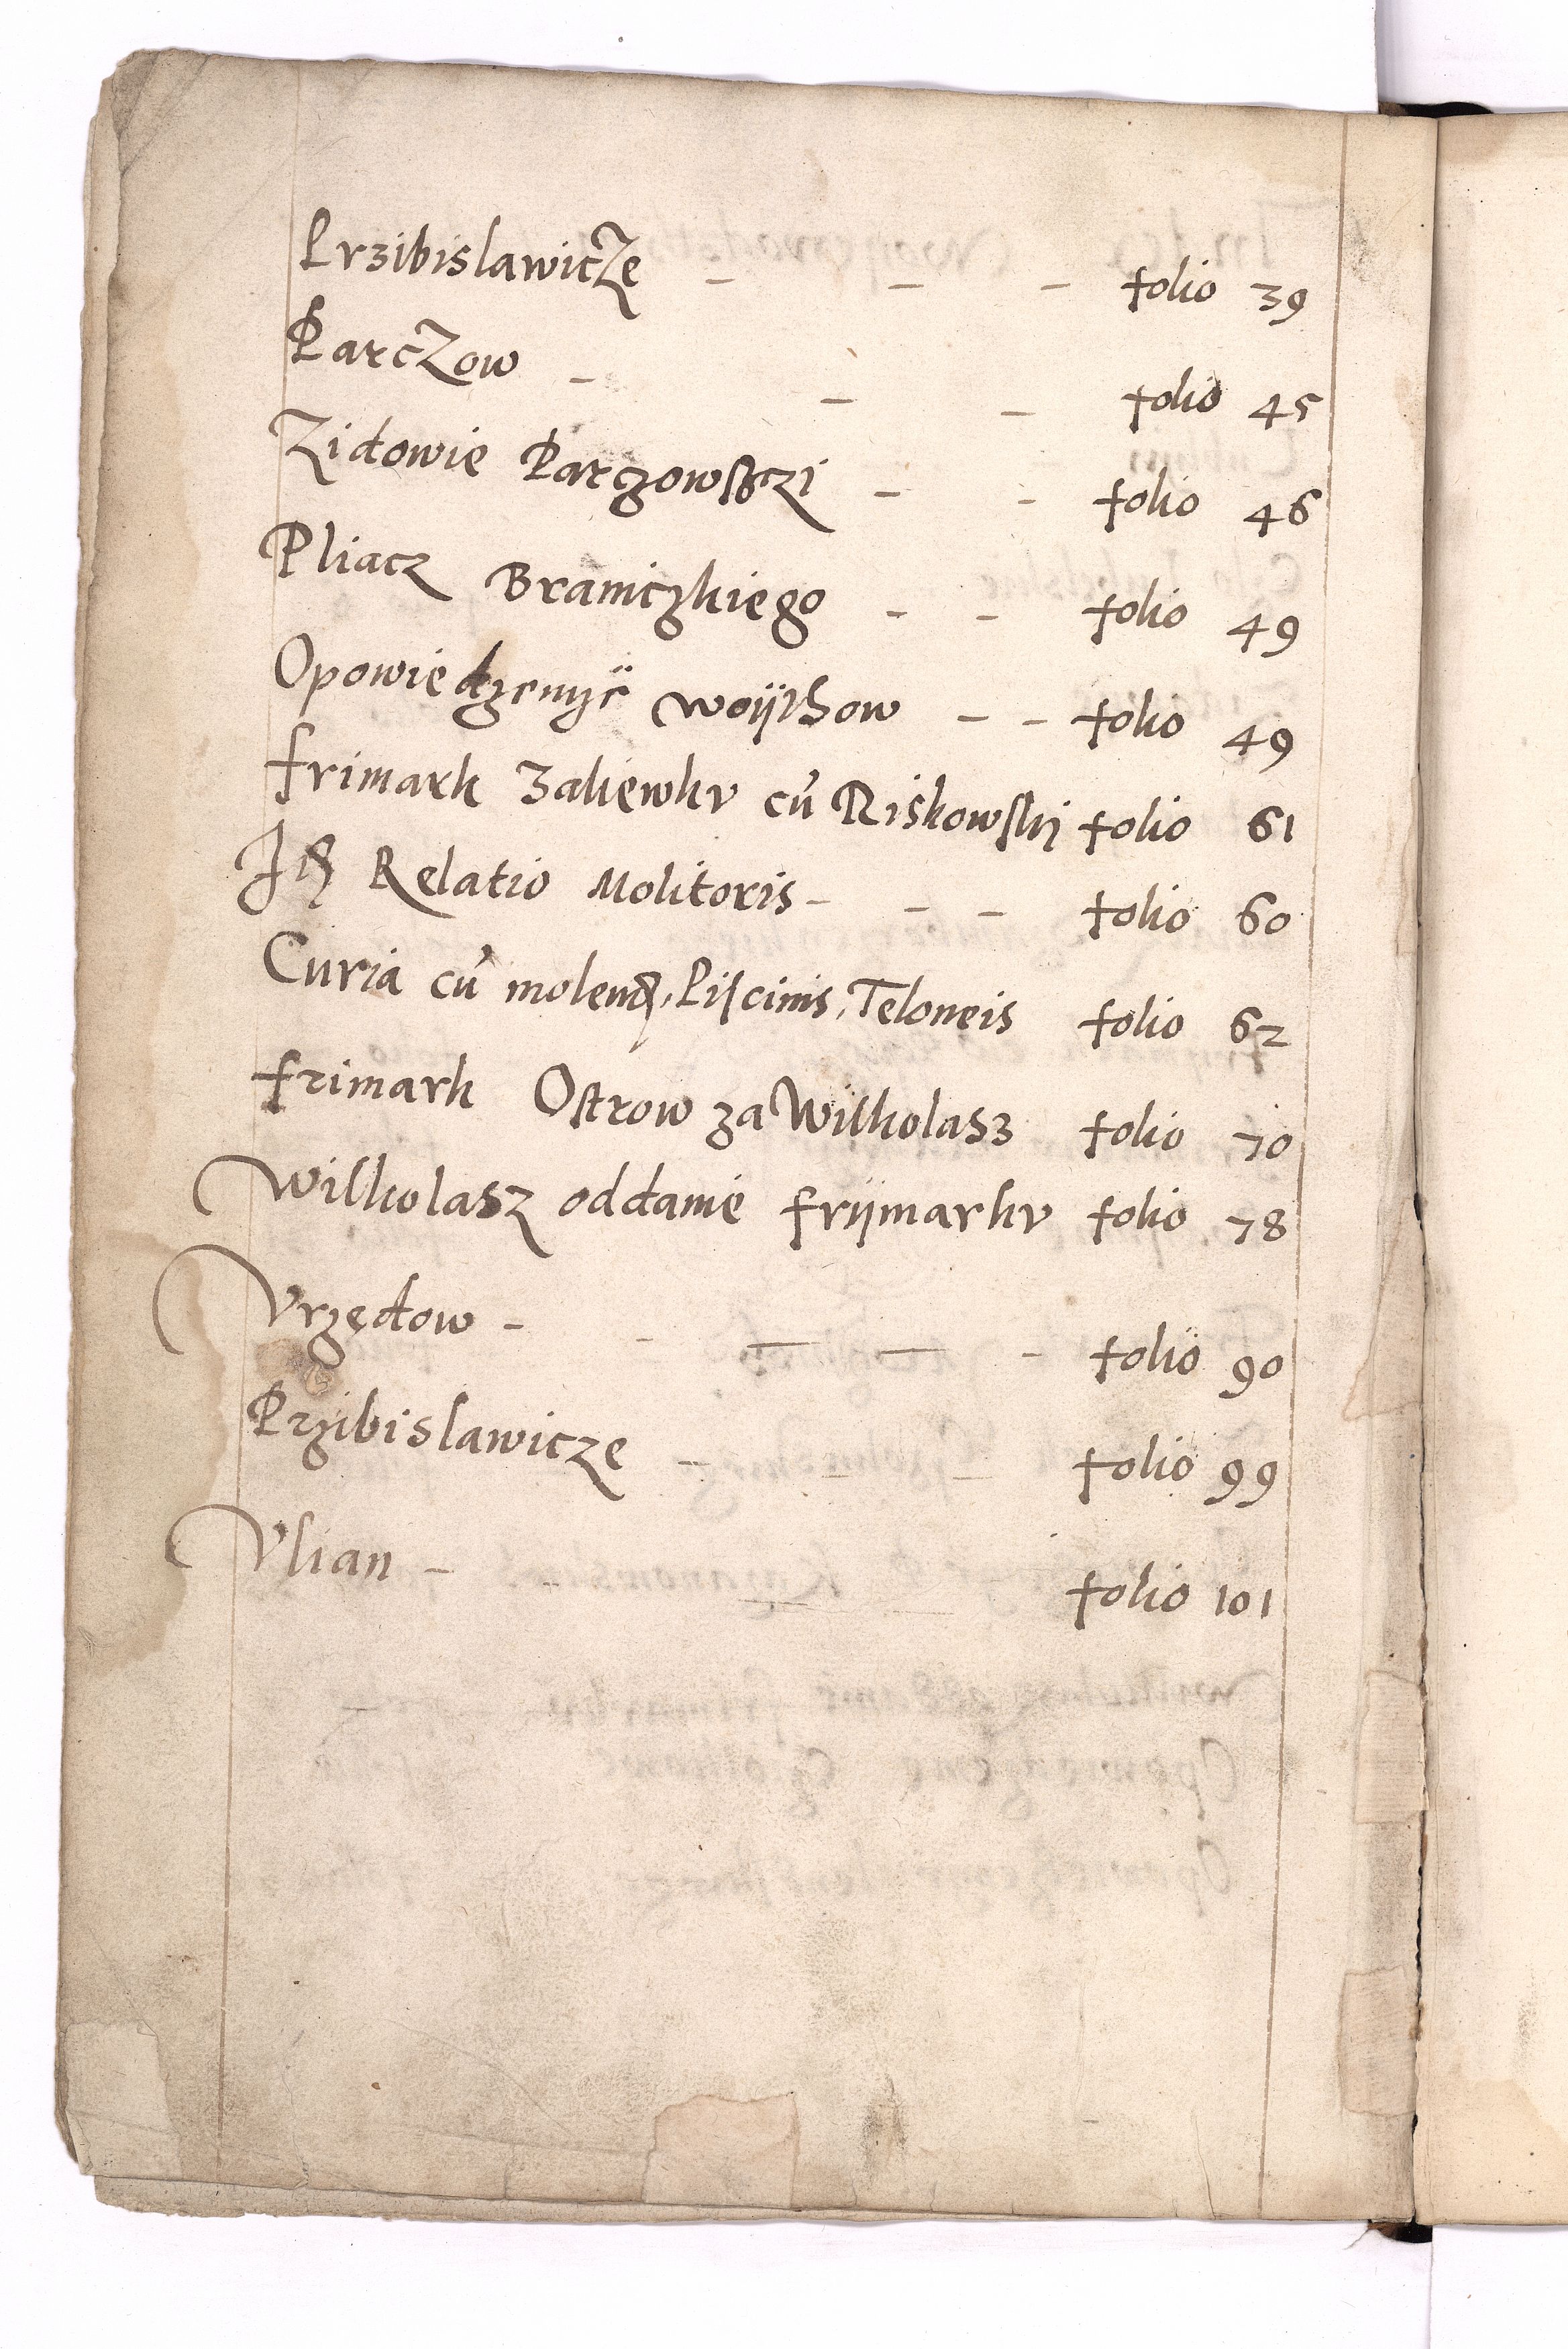 Przibislawicze - - - folio 39
Parczow - - - folio 45
Zidowie Parczowsczi - - folio 46
Pliacz Braniczkiego - - folio 49
Opowiedzenyÿe woÿthow - - folio 49
frimark Zaliewkv cū Riskowski folio 61
Relatio Molitoris - - - folio 60
Curia cū molend, Piscinis, Teloneis folio 62
frimark Ostrow za Wilkolasz folio 70
Wilkolasz oddanie frÿmarkv folio 78
Vrzędow - - - - - folio 90
Przibislawicze - - - folio 99
Vlian - - folio 101